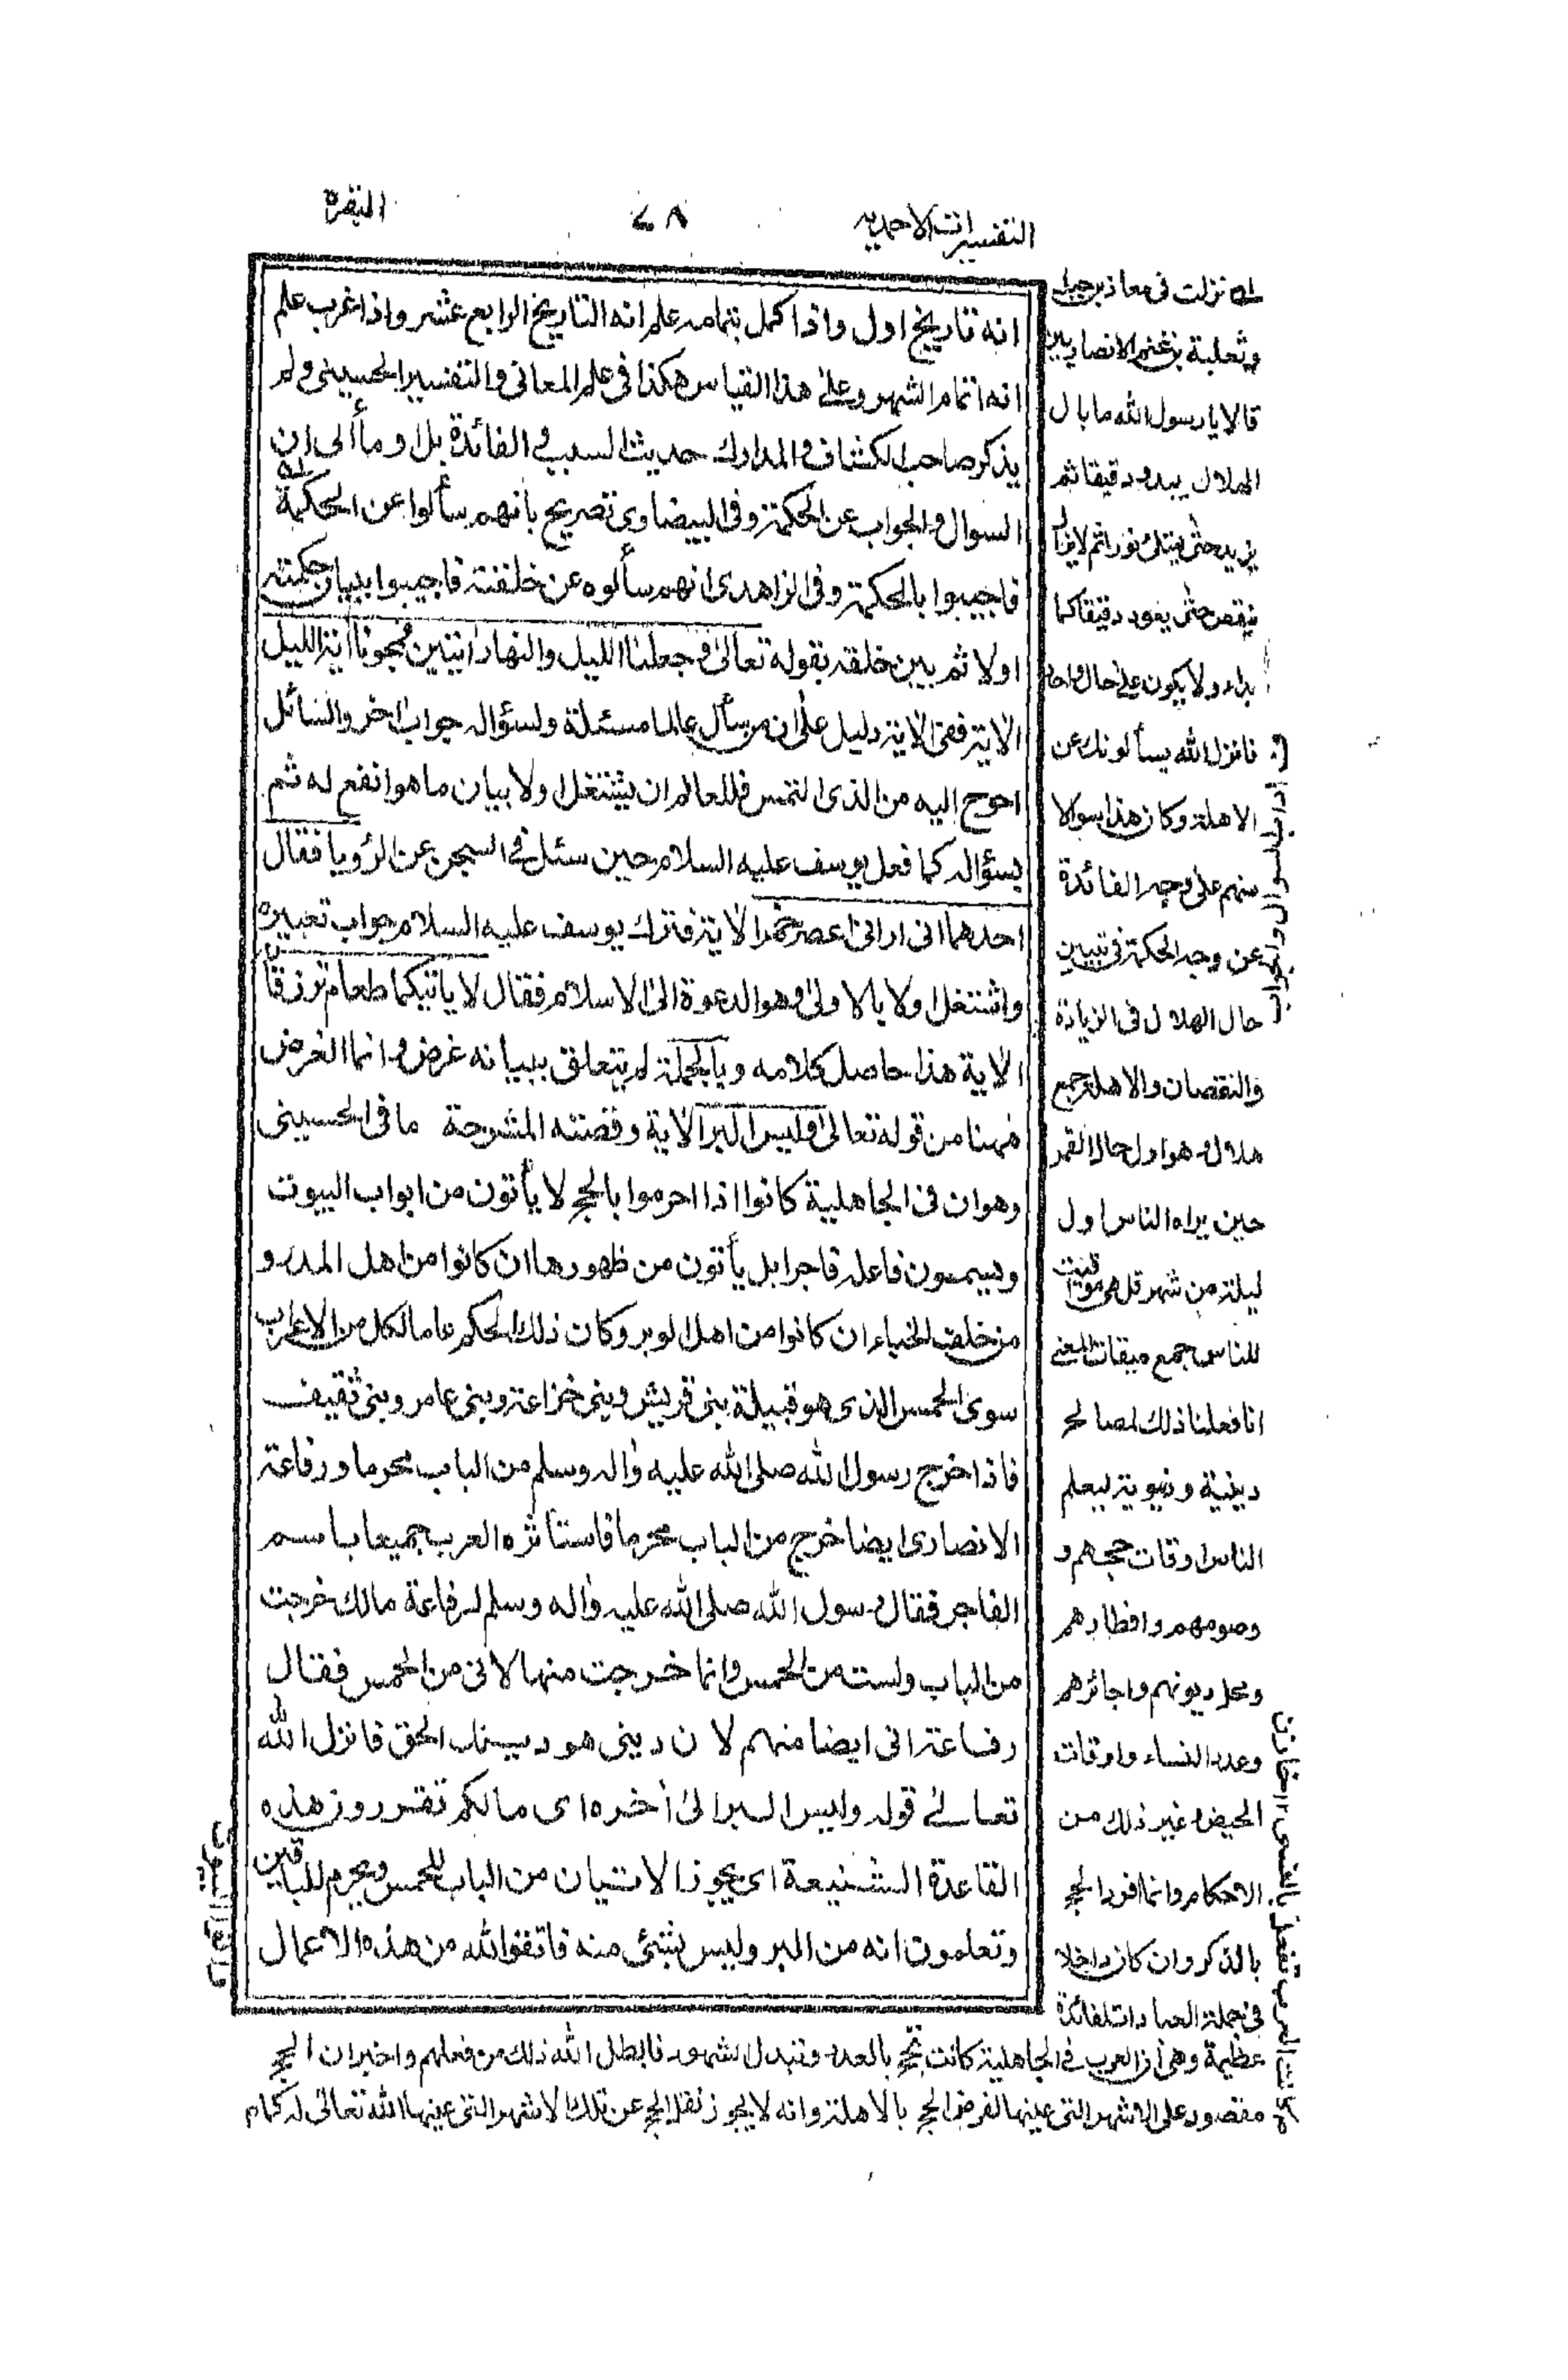 التفسيرات الاحمديه
٧٨
البقره
انه تاريخ اول واذا كمل بتمامه علم انه التاريخ الرابع عشر واذا غرب علم
انه اتمام الشهر وعلى هذا القياس هكذا فى علم المعانى والتفسير الحسينى ولم
يذكر صاحب الكشاف والمدارك حديث السبب فى الفائدة بل اومأ الى ان
السوال والجواب عن الحكمة وفى البيضاوى تصريح بانهم سألوا عن الحكمة
فاجيبوا بالحكمة وفى الزاهدى انهم سألوه عن خلقته فاجيبوا ببيان حكمته
اولا ثم بيين خلقه بقوله تعالى وجعلنا الليل والنهار اٰيتين فمحونا اٰية الليل
الاٰية ففى الاٰية دليل على ان من سأل عالما مسئلة ولسؤاله جواب اٰخر والسائل
احوج اليه من الذى التمس فللعالم ان يشتغل اولا ببيان ما هو انفع له ثم
بسؤاله كما فعل يوسف عليه السلام حين سئل فى السجن عن الرؤيا فقال
احدهما انى ارانى اعصر خمرا الاٰية فترك يوسف عليه السلام جواب تعبيره
واشتغل اولا بالاولى وهو الدعوة الى الاسلام فقال لا ياتيكما طعام ترزقانه
الاٰية هذا حاصل كلامه وبالجملة لم يتعلق ببيانه غرض وانما الغرض
ههنا من قوله تعالى وليس البر الاٰية وقصته المشرحة ما فى الحسينى
وهو ان فى الجاهلية كانوا اذا احرموا بالحج لا يأتون من ابواب البيوت
ويسمون فاعله فاجرا بل يأتون من ظهورها ان كانوا من اهل المدر و
من خلف الخباء ان كانوا من اهل الوبر وكان ذلك الحكم عاما لكل من الاعراب
سوى الحمس الذى هو قبيلة بنى قريش وبنى خزاعة وبنى عامر وبنى ثقيف
فاذا خرج رسول الله صلى الله عليه واٰله وسلم من الباب محرما ورفاعة
الانصارى ايضا خرج من الباب محرما فاستأثره العرب جميعا باسم
الفاجر فقال رسول الله صلى الله عليه واٰله وسلم لرفاعة مالك خرجت
من الباب ولست من الحمس وانما خرجت منها لانى من الحمس فقال
رفاعة انى ايضا منهم لان دينى هو دينك الحق فانزل الله
تعالى قوله وليس البر الى اٰخره اى مالكم تقررون هذه
القاعدة الشنيعة اى يجوز الاتيان من الباب للحمس ويحرم للباقين
وتعلمون انه من البر وليس بشئ منه فاتقوا الله من هذه الاعمال
له نزلت فى معاذ بن جبل
وثعلبة بن غنم الانصاريين
قالا يا رسول الله ما بال
الهلال يبدو دقيقا ثم
يزيد حتى يمتلئ نورا ثم لا يزال
ينقص حتى يعود دقيقا كما
بداء ولا يكون على حال واحد
فانزل الله يسألونك عن
الاهلة وكان هذا سوالا
منهم على وجه الفائدة
عن وجه الحكمة فى تبيين
حال الهلال فى الزيادة
والنقصان والاهلة جمع
هلال وهو اول حال القمر
حين يراه الناس اول
ليلة من شهر قل هى مواقيت
للناس جمع ميقات المعنى
انا فعلنا ذلك لمصالح
دينية ودنيوية ليعلم
الناس اوقات حجهم و
وصومهم وافطارهم
ومحل ديونهم واجائرهم
وعدد النساء واوقات
الحيض وغير ذلك من
الاحكام وانما افرد الحج
بالذكر وان كان داخلا
فى جملة العبادات لفائدة
عظيمة وهى ان العرب فى الجاهلية كانت تحج بالعدد وتبدل الشهور فابطل الله ذلك من فعلهم واخبر ان الحج
مقصور على الاشهر التى عينها لفرض الحج بالاهلة وانه لا يجوز نقل الحج عن تلك الاشهر التى عينها الله تعالى له كما
كانت العرب تفعل بالنسى ١٢ خازن